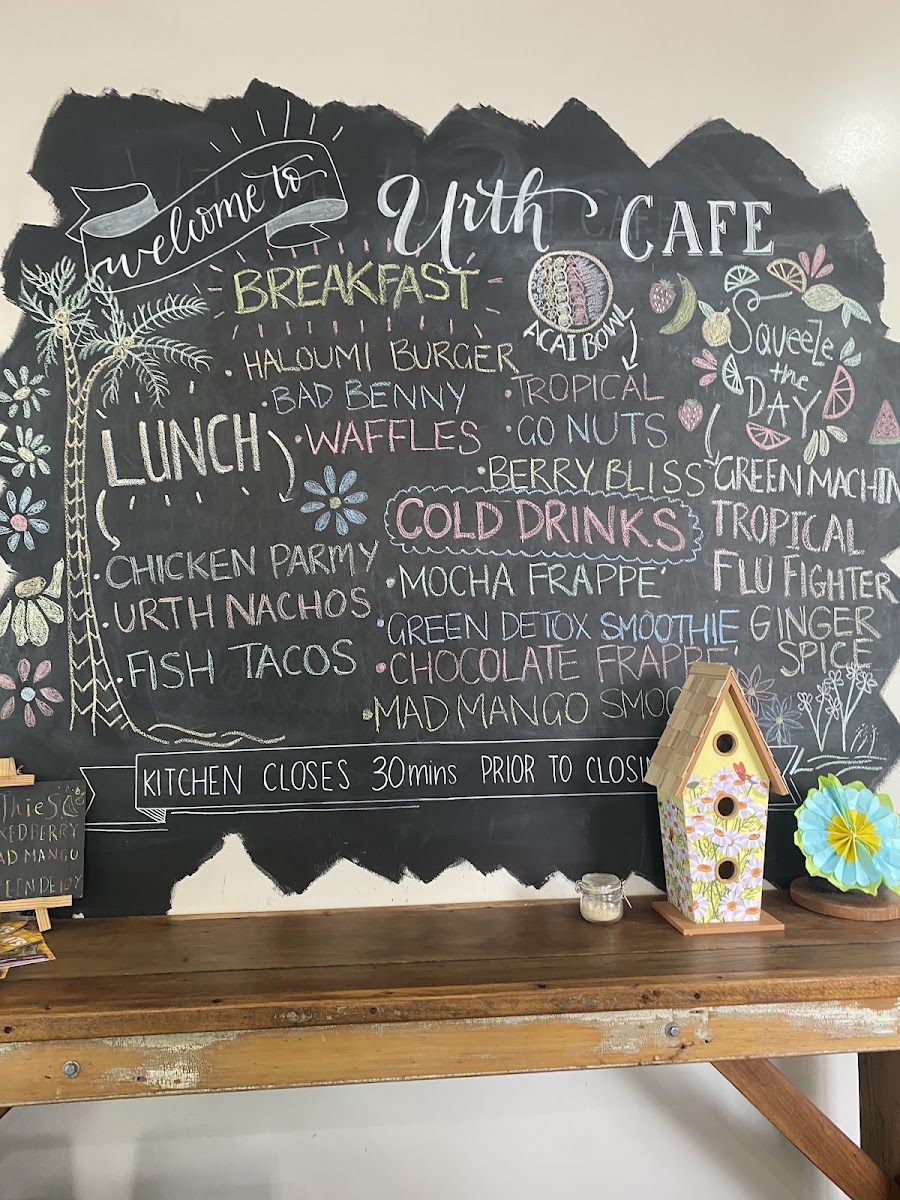 welcome to
Urth CAFE
BREAKFAST
• HALOUMI BURGER
• BAD BENNY
• WAFFLES
ACAI BOWL
• TROPICAL
• GO NUTS
• BERRY BLISS
Squeeze
the
DAY
GREEN MACHIN
TROPICAL
FLU FIGHTER
GINGER
SPICE
LUNCH
• CHICKEN PARMY
• URTH NACHOS
• FISH TACOS
COLD DRINKS
• MOCHA FRAPPE'
• GREEN DETOX SMOOTHIE
• CHOCOLATE FRAPPE'
• MAD MANGO SMOO
KITCHEN CLOSES 30mins PRIOR TO CLOSIN
THIES
XED BERRY
AD MANGO
EEN DETOX